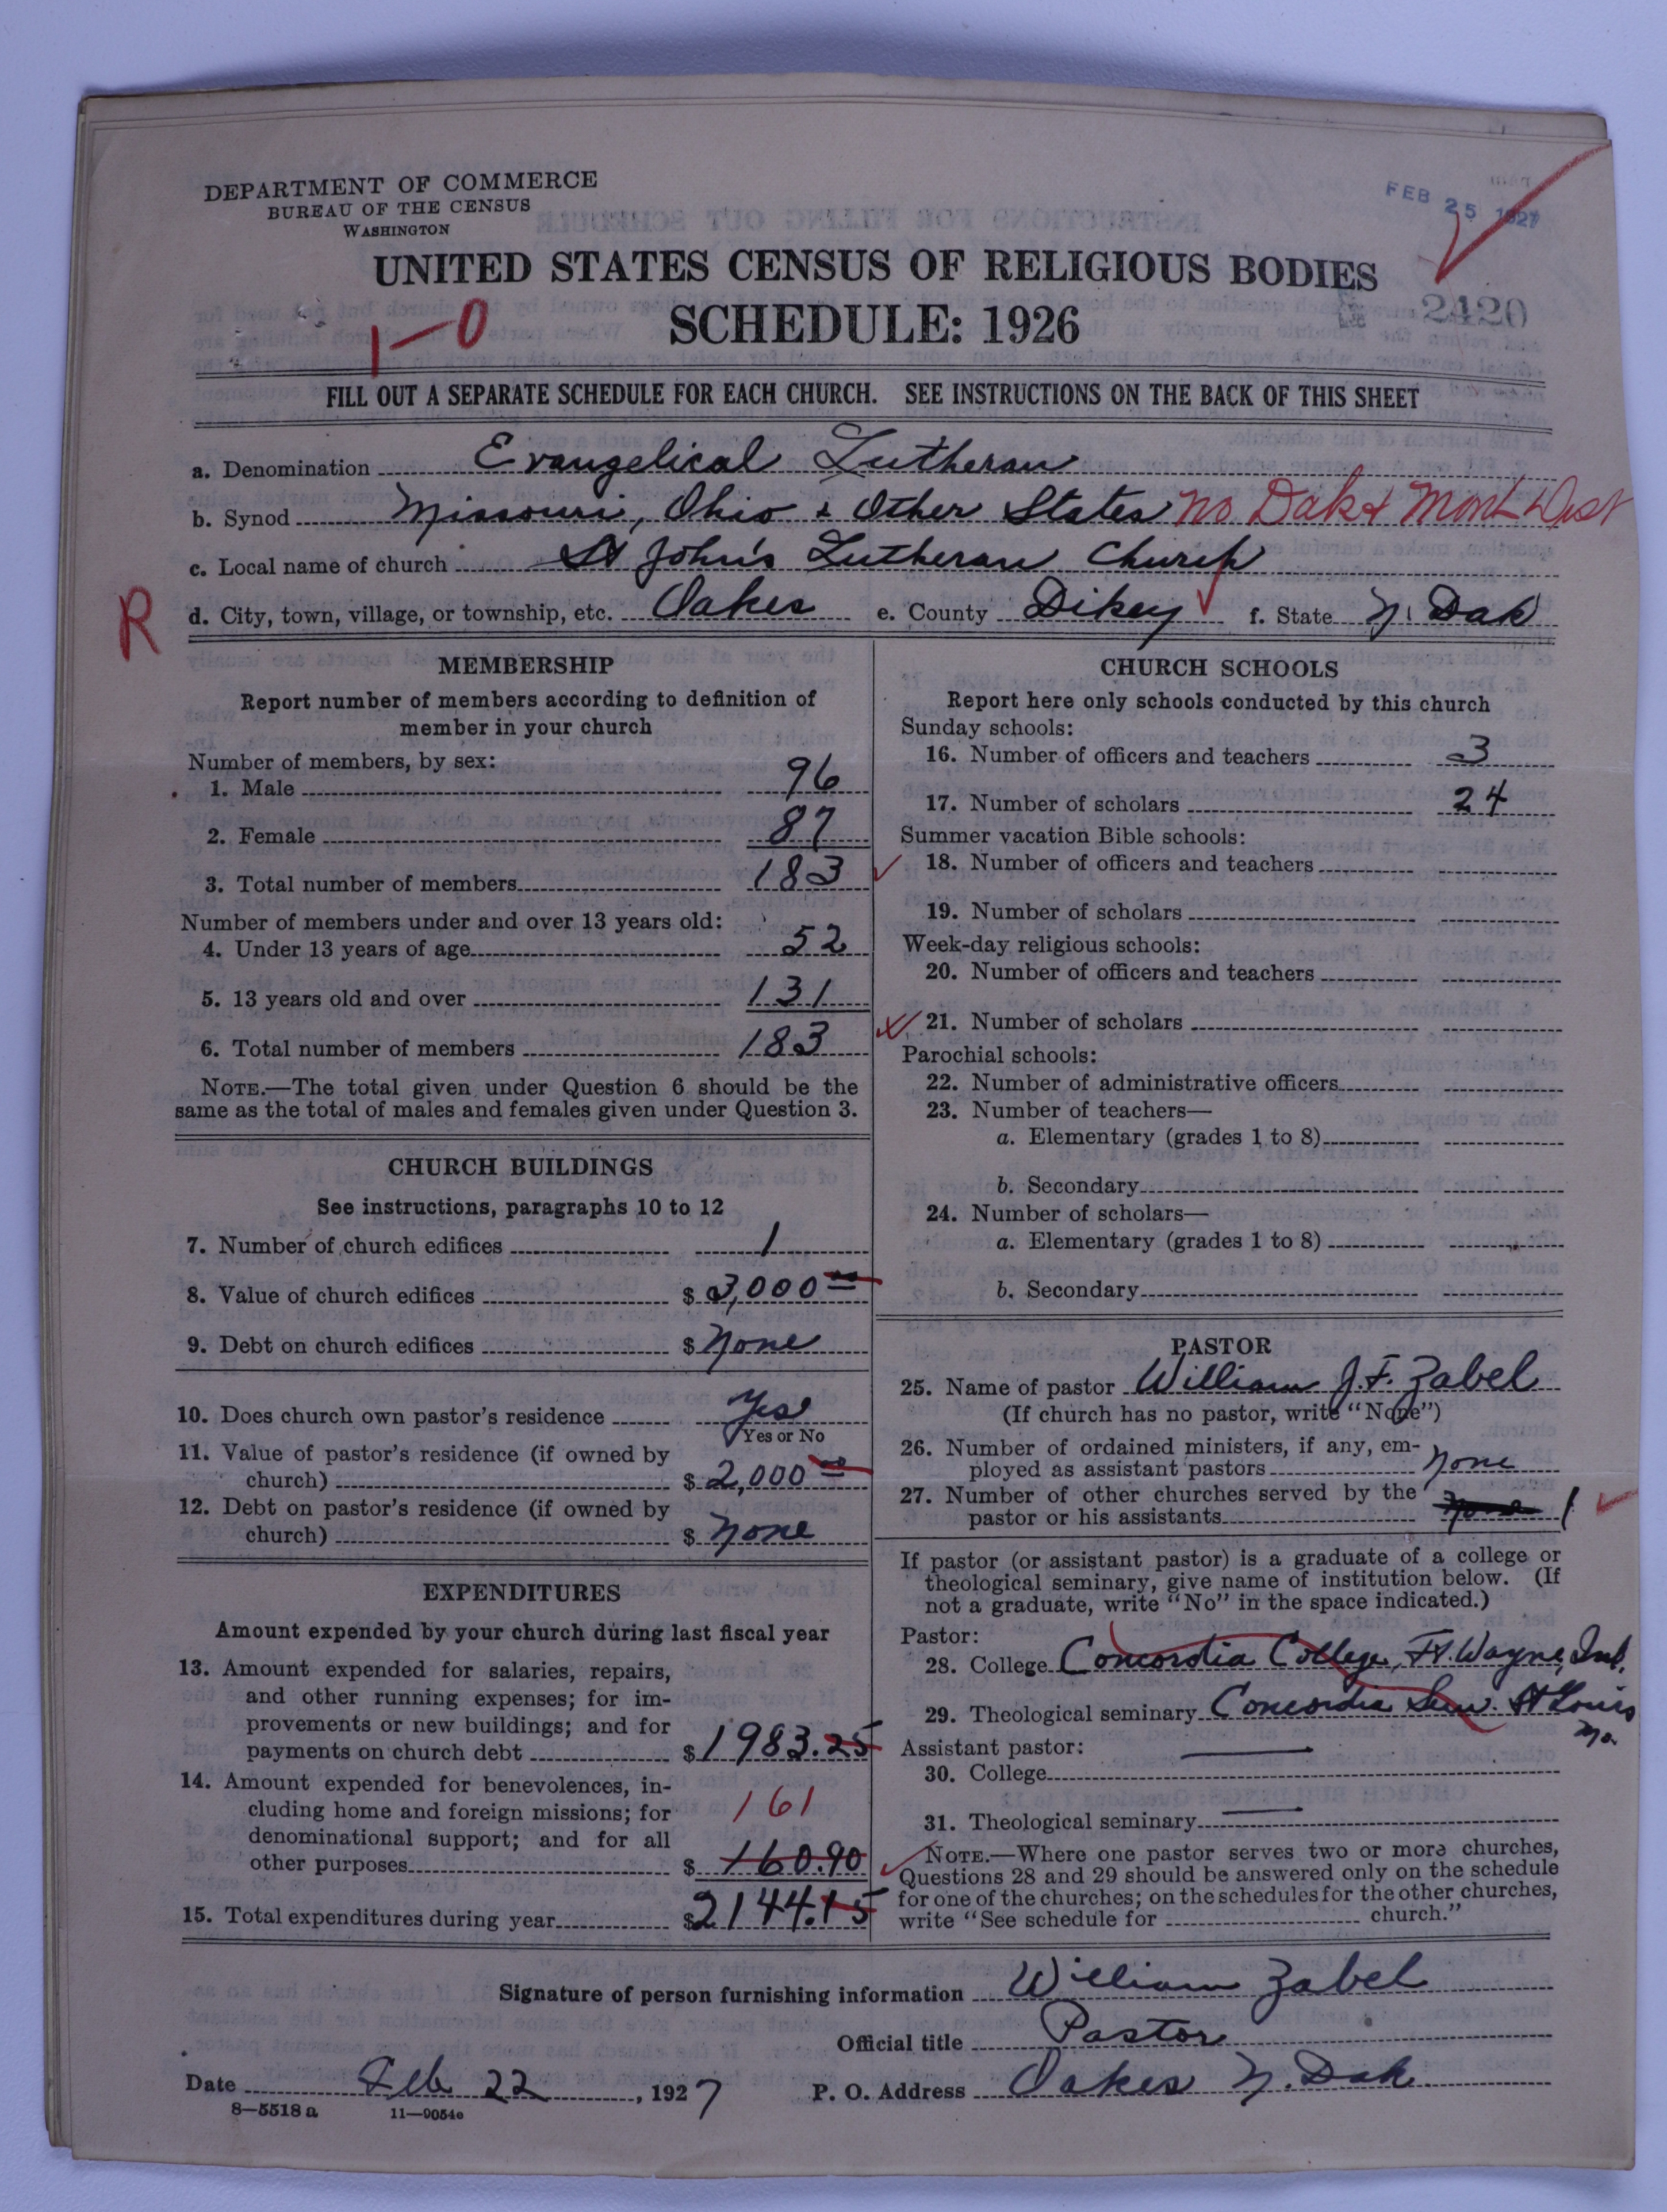 DEPARTMENT OF COMMERCE
BUREAU OF THE CENSUS
WASHINGTON
FEB 25 1927
UNITED STATES CENSUS OF RELIGIOUS BODIES
1-0 SCHEDULE: 1926
2420
FILL OUT A SEPARATE SCHEDULE FOR EACH CHURCH. SEE INSTRUCTIONS ON THE BACK OF THIS SHEET
a. Denomination Evangelical Lutheran
b. Synod Missouri, Ohio & Other States No Dak & Mont Dist
c. Local name of church St John's Lutheran Church
R d. City, town, village, or township, etc. Oakes e. County Dikey f. State N. Dak
MEMBERSHIP
Report number of members according to definition of
member in your church
Number of members, by sex:
1. Male 96
2. Female 87
3. Total number of members 183
Number of members under and over 13 years old:
4. Under 13 years of age 52
5. 13 years old and over 131
6. Total number of members 183
NOTE.—The total given under Question 6 should be the
same as the total of males and females given under Question 3.
CHURCH BUILDINGS
See instructions, paragraphs 10 to 12
7. Number of church edifices 1
8. Value of church edifices $ 3,000 00
9. Debt on church edifices $ None
10. Does church own pastor's residence Yes
Yes or No
11. Value of pastor's residence (if owned by
church) $ 2,000 00
12. Debt on pastor's residence (if owned by
church) $ None
EXPENDITURES
Amount expended by your church during last fiscal year
13. Amount expended for salaries, repairs,
and other running expenses; for im-
provements or new buildings; and for
payments on church debt $ 1983.25
14. Amount expended for benevolences, in-
cluding home and foreign missions; for 161
denominational support; and for all
other purposes $ 160.90
15. Total expenditures during year $ 2144.15
CHURCH SCHOOLS
Report here only schools conducted by this church
Sunday schools:
16. Number of officers and teachers 3
17. Number of scholars 24
Summer vacation Bible schools:
18. Number of officers and teachers
19. Number of scholars
Week-day religious schools:
20. Number of officers and teachers
21. Number of scholars
Parochial schools:
22. Number of administrative officers
23. Number of teachers—
a. Elementary (grades 1 to 8)
b. Secondary
24. Number of scholars—
a. Elementary (grades 1 to 8)
b. Secondary
PASTOR
25. Name of pastor William J. F. Zabel
(If church has no pastor, write "None")
26. Number of ordained ministers, if any, em-
ployed as assistant pastors None
27. Number of other churches served by the
pastor or his assistants None 1
If pastor (or assistant pastor) is a graduate of a college or
theological seminary, give name of institution below. (If
not a graduate, write "No" in the space indicated.)
Pastor:
28. College Concordia College, Ft. Wayne, Ind.
29. Theological seminary Concordia Sem. St Louis
Mo.
Assistant pastor:
30. College
31. Theological seminary
NOTE.—Where one pastor serves two or more churches,
Questions 28 and 29 should be answered only on the schedule
for one of the churches; on the schedules for the other churches,
write "See schedule for church."
Signature of person furnishing information William Zabel
Official title Pastor
Date Feb 22, 1927 P. O. Address Oakes N. Dak.
8—5518 a 11—9054e